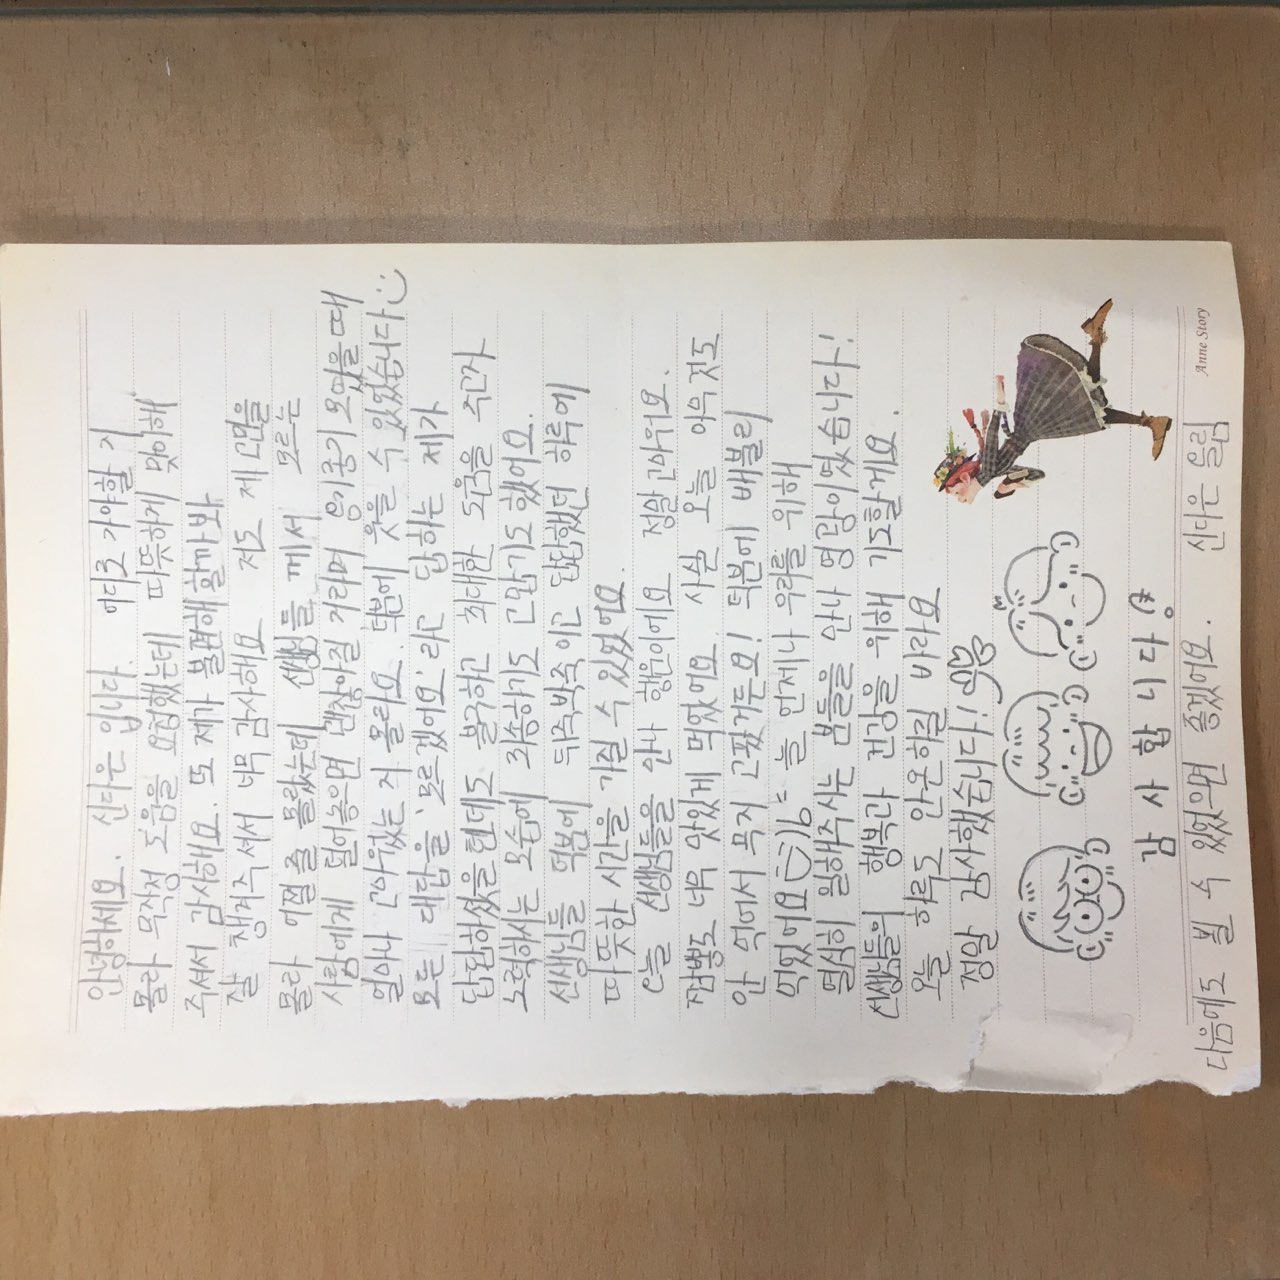 안녕하세요. 신다은 입니다. 어디로 가야할 지
몰라 무작정 도움을 요청했는데 따뜻하게 맞이해
주셔서 감사해요. 또 제가 불편해 할까봐
잘 챙겨주셔서 너무 감사해요 저도 제 마음을
몰라 어쩔 줄 몰랐는데 선생님들 께서 모르는
사람에게 털어놓으면 괜찮아질 거라며 용기중기 모였을 때
얼마나 고마웠는 지 몰라요. 덕분에 웃을 수 있었습니다
모든 대답을 '모르겠어요' 라고 답하는 제가
답답하셨을텐데도 불구하고 최대한 도움을 주고자
노력하시는 모습에 죄송하기도 고맙기도 했어요.
선생님들 덕분에 뒤죽박죽이고 답답했던 하루에
따뜻한 시간을 가질 수 있었어요.
오늘 선생님들을 만나 행운이에요 정말 고마워요.
짬뽕도 너무 맛있게 먹었어요. 사실 오늘 아무것도
안 먹어서 무지 고팠거든요! 덕분에 배불리
먹었어요 늘 언제나 우리를 위해
열심히 일해주시는 분들을 만나 영광이었습니다!
선생님들의 행복과 건강을 위해 기도할게요.
오늘 하루도 안온하길 바라요
정말 감사했습니다!
감사합니다
다음에도 뵐 수 있었으면 좋겠어요. 신다은 올림
Anne Story